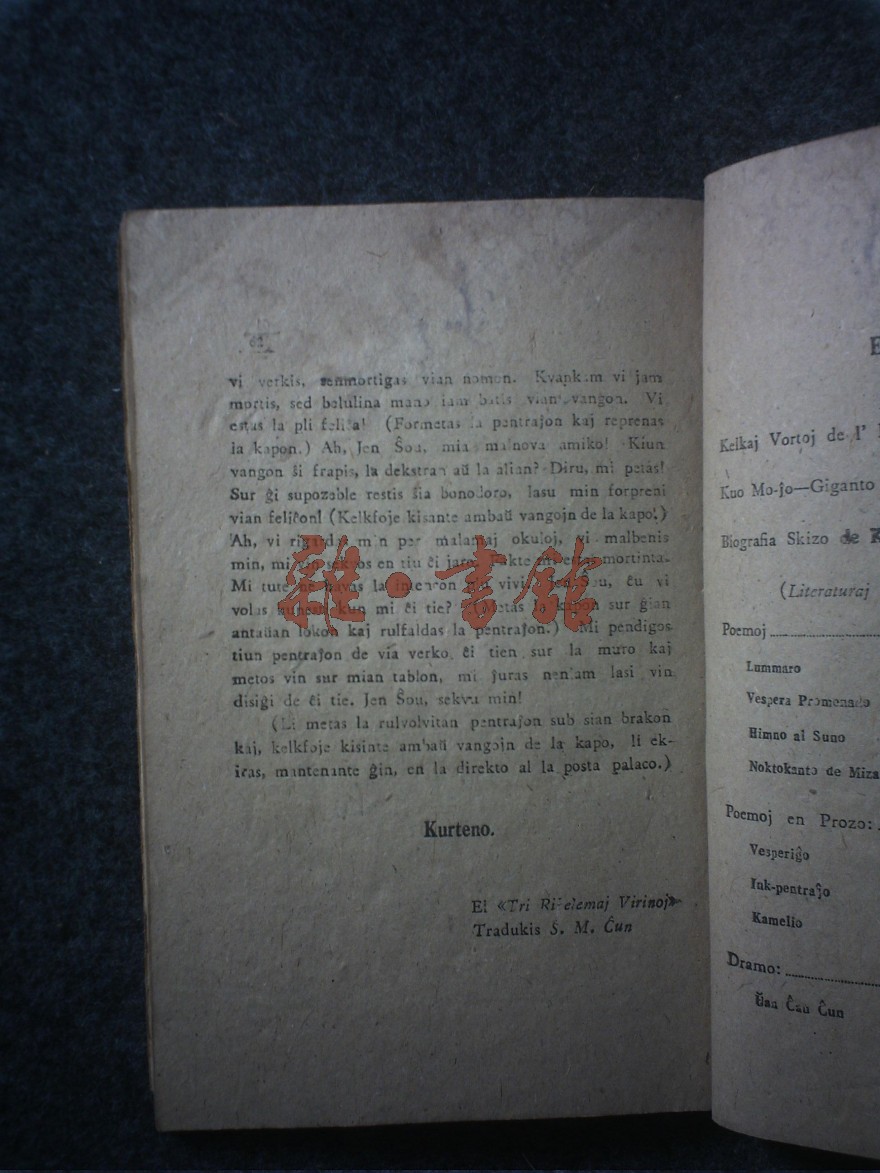 62
vi verkis, senmortigas vian nomon. Kvankam vi jam
mortis, sed belulina mano jam batis vian vangon. Vi
estas la pli feliĉa! (Formetas la pentraĵon kaj reprenas
la kapon.) Ah, Jen Ŝou, mia malnova amiko! Kiun
vangon ŝi frapis, la dekstran aŭ la alian? Diru, mi petas!
Sur ĝi supozeble restis ŝia bonodoro, lasu min forpreni
vian feliĉon! (Kelkfoje kisante ambaŭ vangojn de la kapo.)
Ah, vi rigardas min per malamaj okuloj, vi malbenis
min, mi vin sekvos en tiu ĉi jaro. mi estas mortinta.
Mi tute ne havas la intencon plu vivi. Jen Ŝou, ĉu vi
volas kun mi ĉi tie? (Metas la kapon sur ĝian
antaŭan lokon kaj rulfaldas la pentraĵon.) Mi pendigos
tiun pentraĵon de via verko ĉi tien sur la muro kaj
metos vin sur mian tablon, mi ĵuras neniam lasi vin
disiĝi de ĉi tie. Jen Ŝou, sekvu min!
(Li metas la rulvolvitan pentraĵon sub sian brakon
kaj, kelkfoje kisinte ambaŭ vangojn de la kapo, li ek-
iras, mantenante ĝin, en la direkto al la posta palaco.)
Kurteno.
El «Tri Ribelemaj Virinoj»
Tradukis Ŝ. M. Ĉun
雜·書館
E
Kelkaj Vortoj de l'
Kuo Mo-ĵo—Giganto
Biografia Skizo de K
(Literaturaj
Poemoj
Lummaro
Vespera Promenado
Himno al Suno
Noktokanto de Miza
Poemoj en Prozo:
Vesperiĝo
Ink-pentraĵo
Kamelio
Dramo:
Ŭan Ĉaŭ Ĉun